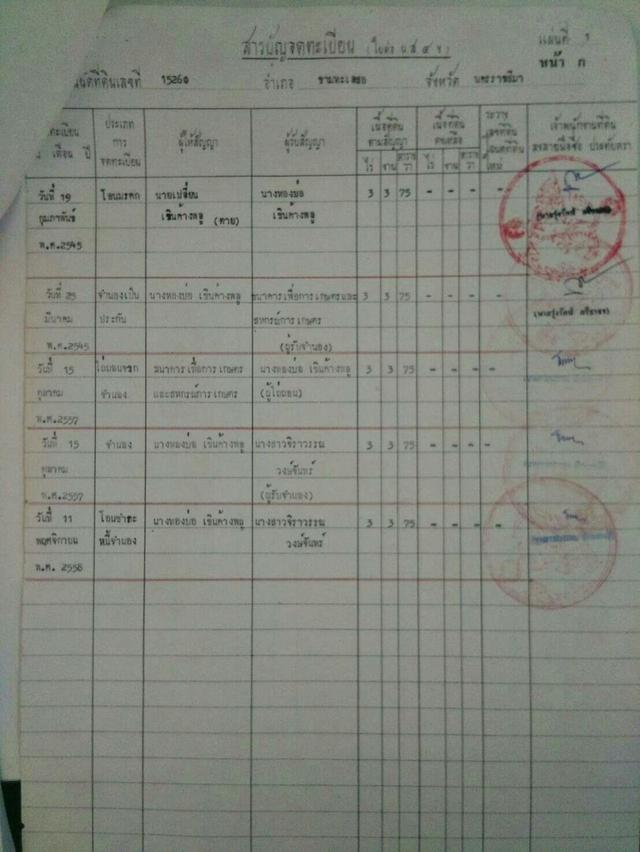 สารบัญจดทะเบียน (ใบต่อ น.ส ๔ จ)
แผ่นที่ 1
หน้า ก
นดที่ดินเลขที่ 15260 อำเภอ ขามทะเลสอ จังหวัด นครราชสีมา
ทะเบียน เดือน ปี
ประเภท การ จดทะเบียน
ผู้ให้สัญญา
ผู้รับสัญญา
เนื้อที่ดิน ตามสัญญา
ไร่ งาน ตาราง วา
เนื้อที่ดิน คงเหลือ
ไร่ งาน ตาราง วา
ระวาง เลขที่ดิน ใหม่
เจ้าพนักงานที่ดิน ลงลายมือชื่อ ประทับตรา
วันที่ 19 โอนมรดก นายเปลี่ยน นางทองบ่อ 3 3 75 - - - -
กุมภาพันธ์ เขินค้างพลู (ตาย) เขินค้างพลู
พ.ศ.2545
วันที่ 25 จำนองเป็น นางทองบ่อ เขินค้างพลู ธนาคารเพื่อการเกษตรและ 3 3 75 - - - -
มีนาคม ประกัน สหกรณ์การเกษตร
พ.ศ.2545 (ผู้รับจำนอง)
วันที่ 15 ไถ่ถอนจาก ธนาคารเพื่อการเกษตร นางทองบ่อ เขินค้างพลู 3 3 75 - - - -
ตุลาคม จำนอง และสหกรณ์การเกษตร (ผู้ไถ่ถอน)
พ.ศ.2557
วันที่ 15 จำนอง นางทองบ่อ เขินค้างพลู นางสาวจิราวรรณ 3 3 75 - - - -
ตุลาคม วงษ์จันทร์
พ.ศ.2557 (ผู้รับจำนอง)
วันที่ 11 โอนชำระ นางทองบ่อ เขินค้างพลู นางสาวจิราวรรณ 3 3 75 - - - -
พฤศจิกายน หนี้จำนอง วงษ์จันทร์
พ.ศ. 2558